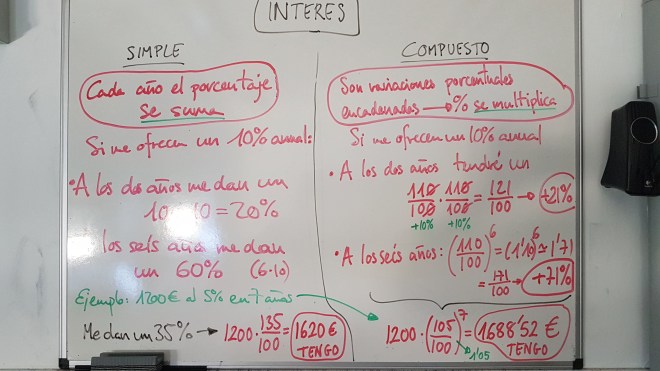 INTERES
SIMPLE
Cada año el porcentaje
se suma
Si me ofrecen un 10% anual:
• A los dos años me dan un
10 10 = 20%
los seis años me dan
un 60% (6·10)
Ejemplo: 1200€ al 5% en 7 años
Me dan un 35% → 1200 · 135/100 = 1620 €
TENGO
COMPUESTO
Son variaciones porcentuales
encadenadas → % se multiplica
Si me ofrecen un 10% anual
• A los dos años tendré un
110/100 · 110/100 = 121/100 → +21%
+10% +10%
• A los seis años: (110/100)^6 = (1'10)^6 ≃ 1'71
= 171/100 → +71%
1200 · (105/100)^7 = 1688'52 €
1'05 TENGO